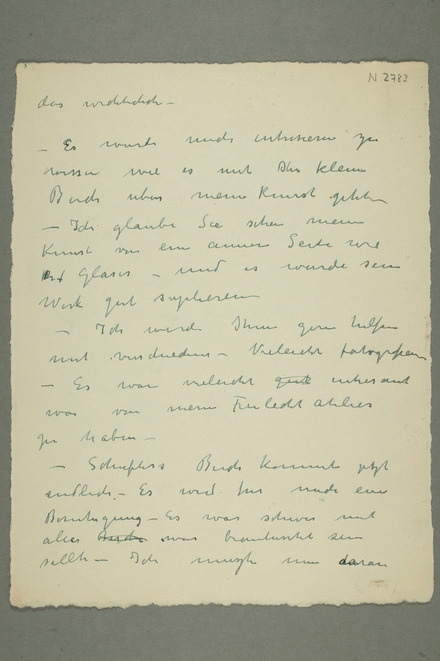 N 2783
das
— Es wurde mich intresieren zu
wissen wie es mit Ihr klein
Buch uber meine Kunst geht
— Ich glaube Sie sehen meine
Kunst von eine annere Seite wie
Glaser — und es wurde sein
Werk gut suplieren
— Ich werde Ihnen gern helfen
mit — Vieleicht fotografien
— Es war vieleicht gut intresant
was von meine Freilecht atelies
zu haben —
— Schieflers Buch kommt jetzt
endlich — Es wird fur mich eine
— Es war schwer mit
alles was sein
sollte — Ich nun daran